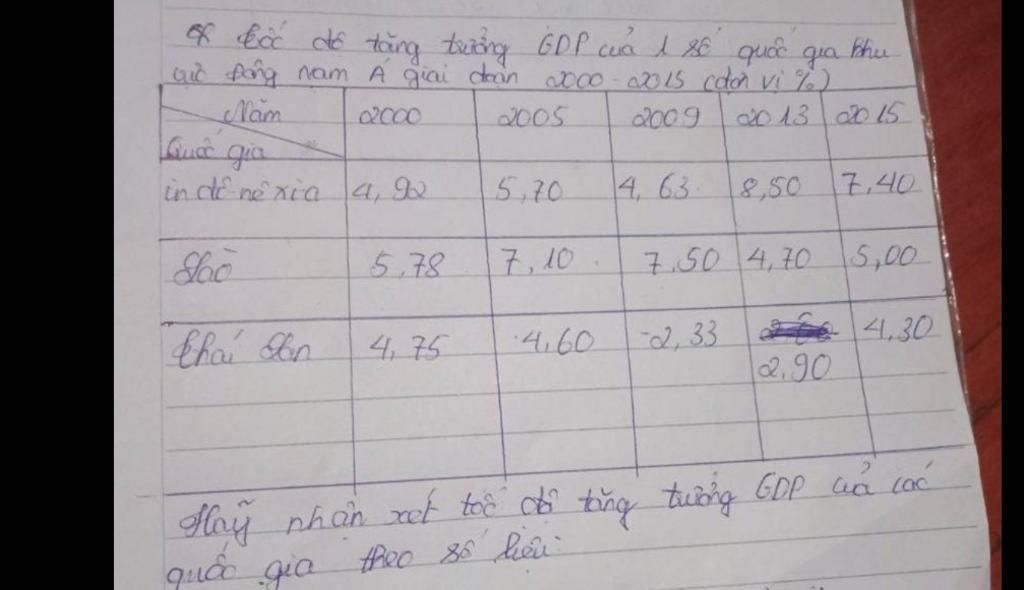 * Tốc độ tăng trưởng GDP của 1 số quốc gia khu
vực Đông nam Á giai đoạn 2000-2015 (đơn vị %)
Năm 2000 2005 2009 2013 2015
Quốc gia
in đô nê xia 4,92 5,70 4,63 8,50 7,40
Lào 5,78 7,10 7,50 4,70 5,00
thái lan 4,75 4,60 -2,33 4,30
2,90
Hãy nhận xét tốc độ tăng trưởng GDP của các
quốc gia theo số liệu